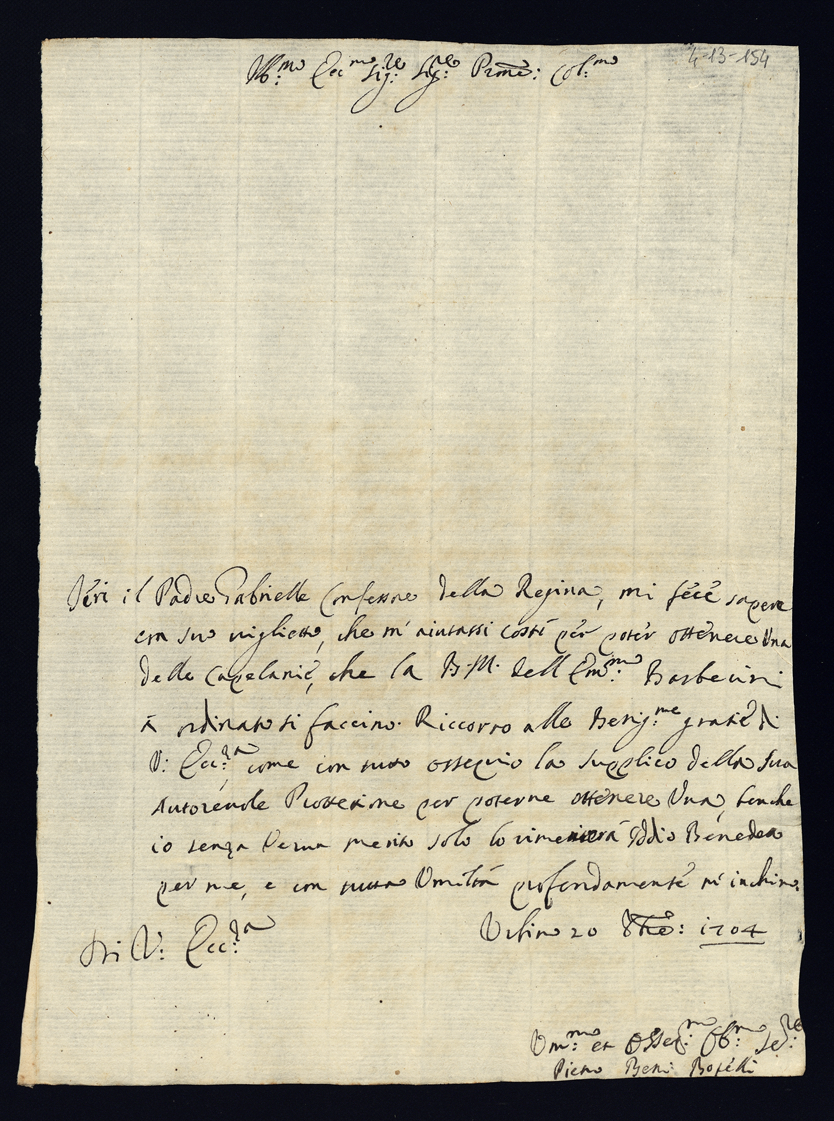 4-13-154
Ill:mo Ecc:mo Sig:re Sig:re P'rone: Col:mo
Ieri il Padre Gabrielle Confessore della Regina, mi fece sapere
con suo viglietto, che m'aiutassi costì per poter ottenere Una
delle Capelanie, che la B: M: dell Em:mo Barberini
à ordinato si faccino. Riccorro alle Benig:me gratie di
V: Ecc:za, come con tutto ossequio la supplico della sua
Autorevole Protetione per poterne ottenere Una, benche
io senza verun merito solo lo rimeritterà Iddio Benedetto
per me, e con tutta Umiltà profondamente m'inchino
Di V: Ecc:za
Urbino 20 8bre: 1704
Um:mo et Osseq:mo Obb:mo Se:re
Pietro Ben: